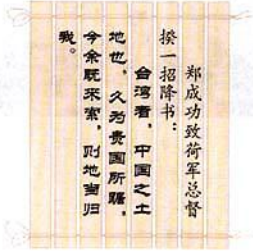 郑成功致荷军总督
揆一招降书：
台湾者，中国之土
地也，久为贵国所踞，
今余既来索，则地当归
我。